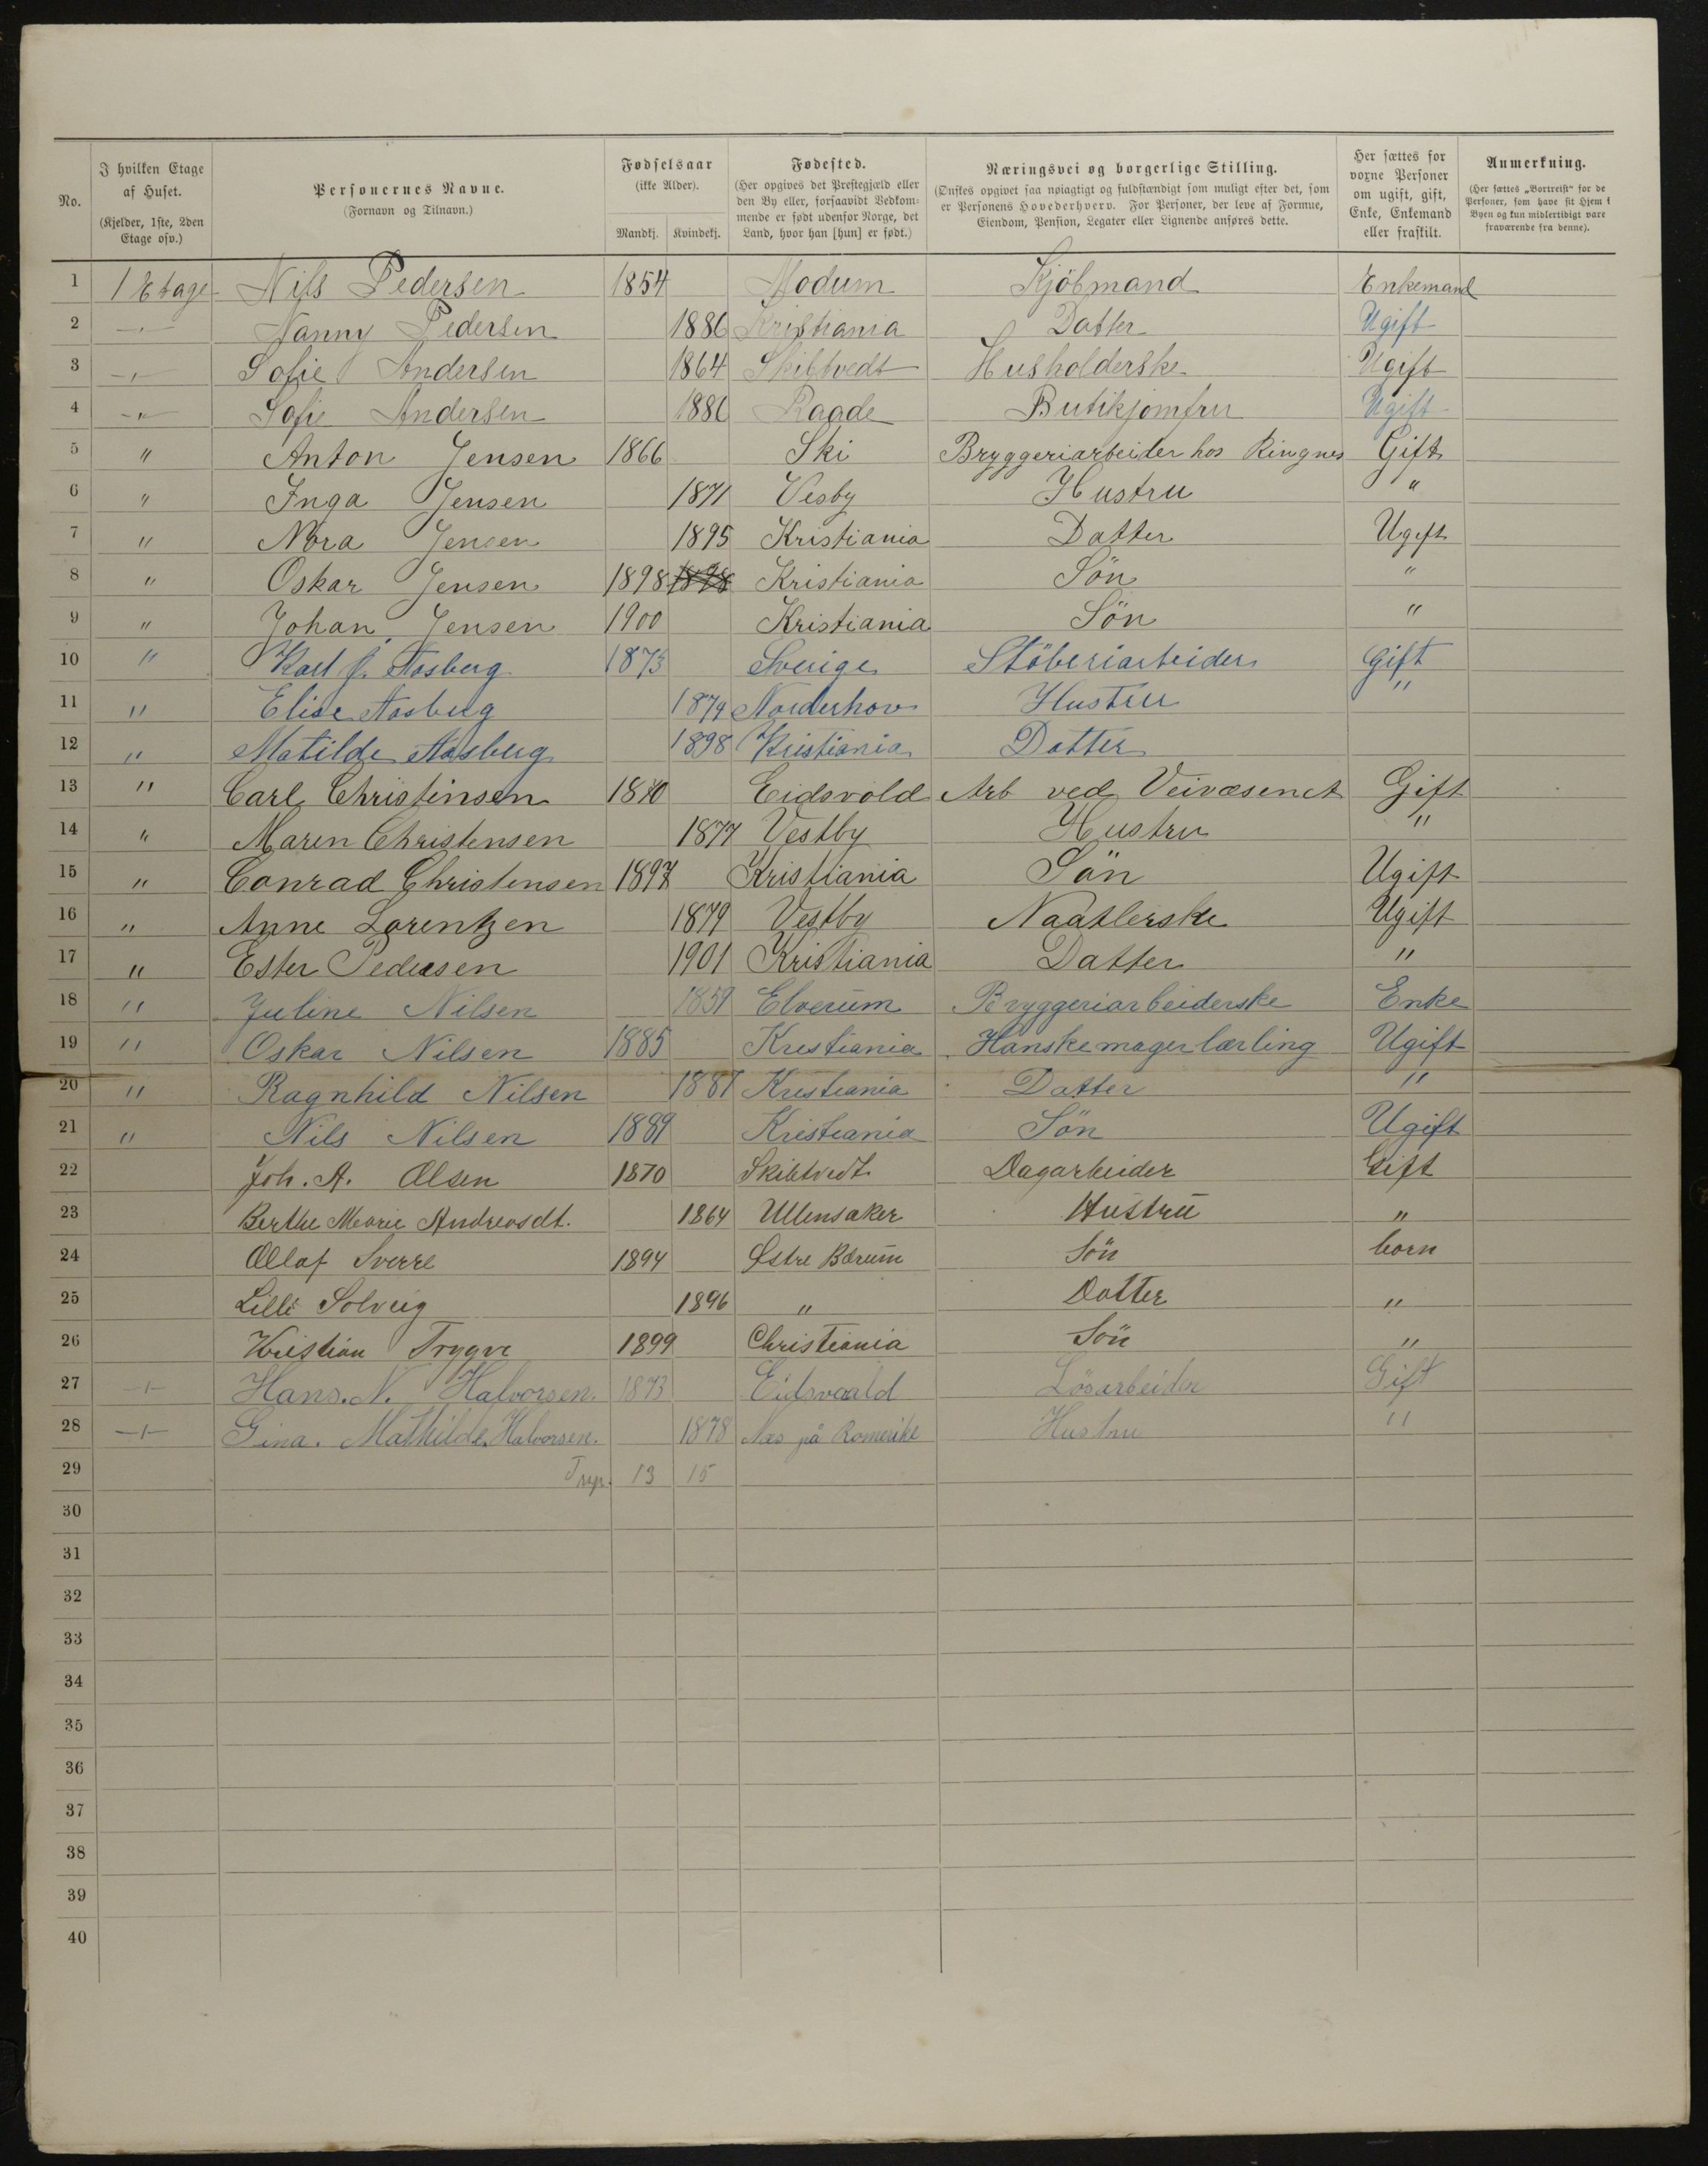 No.
I hvilken Etage af Huset. (Kjelder, 1ste, 2den Etage osv.)
Personernes Navne. (Fornavn og Tilnavn.)
Fødselsaar (ikke Alder).
Mandkj. Kvindekj.
Fødested. (Her opgives det Prestegjæld eller den By eller, forsaavidt Vedkommende er født udenfor Norge, det Land, hvor han [hun] er født.)
Næringsvei og borgerlige Stilling. (Ønskes opgivet saa nøiagtigt og fuldstændigt som muligt efter det, som er Personens Hovederhverv. For Personer, der leve af Formue, Eiendom, Pension, Legater eller Lignende anføres dette.
Her sættes for voxne Personer om ugift, gift, Enke, Enkemand eller fraskilt.
Anmerkning. (Her sættes „Bortreist“ for de Personer, som have sit Hjem i Byen og kun midlertidigt vare fraværende fra denne).
1 1 Etage Nils Pedersen 1854 Modum Kjöbmand Enkemand
2 -"- Nanny Pedersen 1886 Kristiania Datter Ugift
3 -"- Sofie Andersen 1864 Skibtvedt Husholderske Ugift
4 -"- Sofie Andersen 1886 Raade Butikjomfru Ugift
5 " Anton Jensen 1866 Ski Bryggeriarbeider hos Ringnes Gift
6 " Inga Jensen 1871 Vesby Hustru "
7 " Nora Jensen 1895 Kristiania Datter Ugift
8 " Oskar Jensen 1898 1898 Kristiania Sön "
9 " Johan Jensen 1900 Kristiania Sön "
10 " Karl J. Aasberg 1873 Sverige Stöberiarbeider Gift
11 " Elise Aasberg 1874 Norderhov Hustru "
12 " Matilde Aasberg 1898 Kristiania Datter
13 " Carl Christinsen 1870 Eidsvold Arb ved Veivæsenet Gift
14 " Maren Christensen 1877 Vestby Hustru "
15 " Conrad Christensen 1897 Kristiania Sön Ugift
16 " Anne Lorentzen 1879 Vestby Naatlerske Ugift
17 " Ester Pedersen 1901 Kristiania Datter "
18 " Juline Nilsen 1859 Elverum Bryggeriarbeiderske Enke
19 " Oskar Nilsen 1885 Kristiania Hanskemagerlærling Ugift
20 " Ragnhild Nilsen 1887 Kristiania Datter "
21 " Nils Nilsen 1889 Kristiania Sön Ugift
22 Joh. A. Olsen 1870 Skibtvedt Dagarbeider Gift
23 Berthe Marie Andreasdt. 1864 Ullensaker Hustru "
24 Ollaf Sverre 1894 Østre Bærum Sön born
25 Lilli Solveig 1896 " Datter "
26 Kristian Trygve 1899 Christiania Sön "
27 -"- Hans. N. Halvorsen. 1873 Eidsvaald Lösarbeider Gift
28 -"- Gina. Mathilde. Halvorsen. 1878 Næs på Romerike Hustru "
29 13 15
30
31
32
33
34
35
36
37
38
39
40